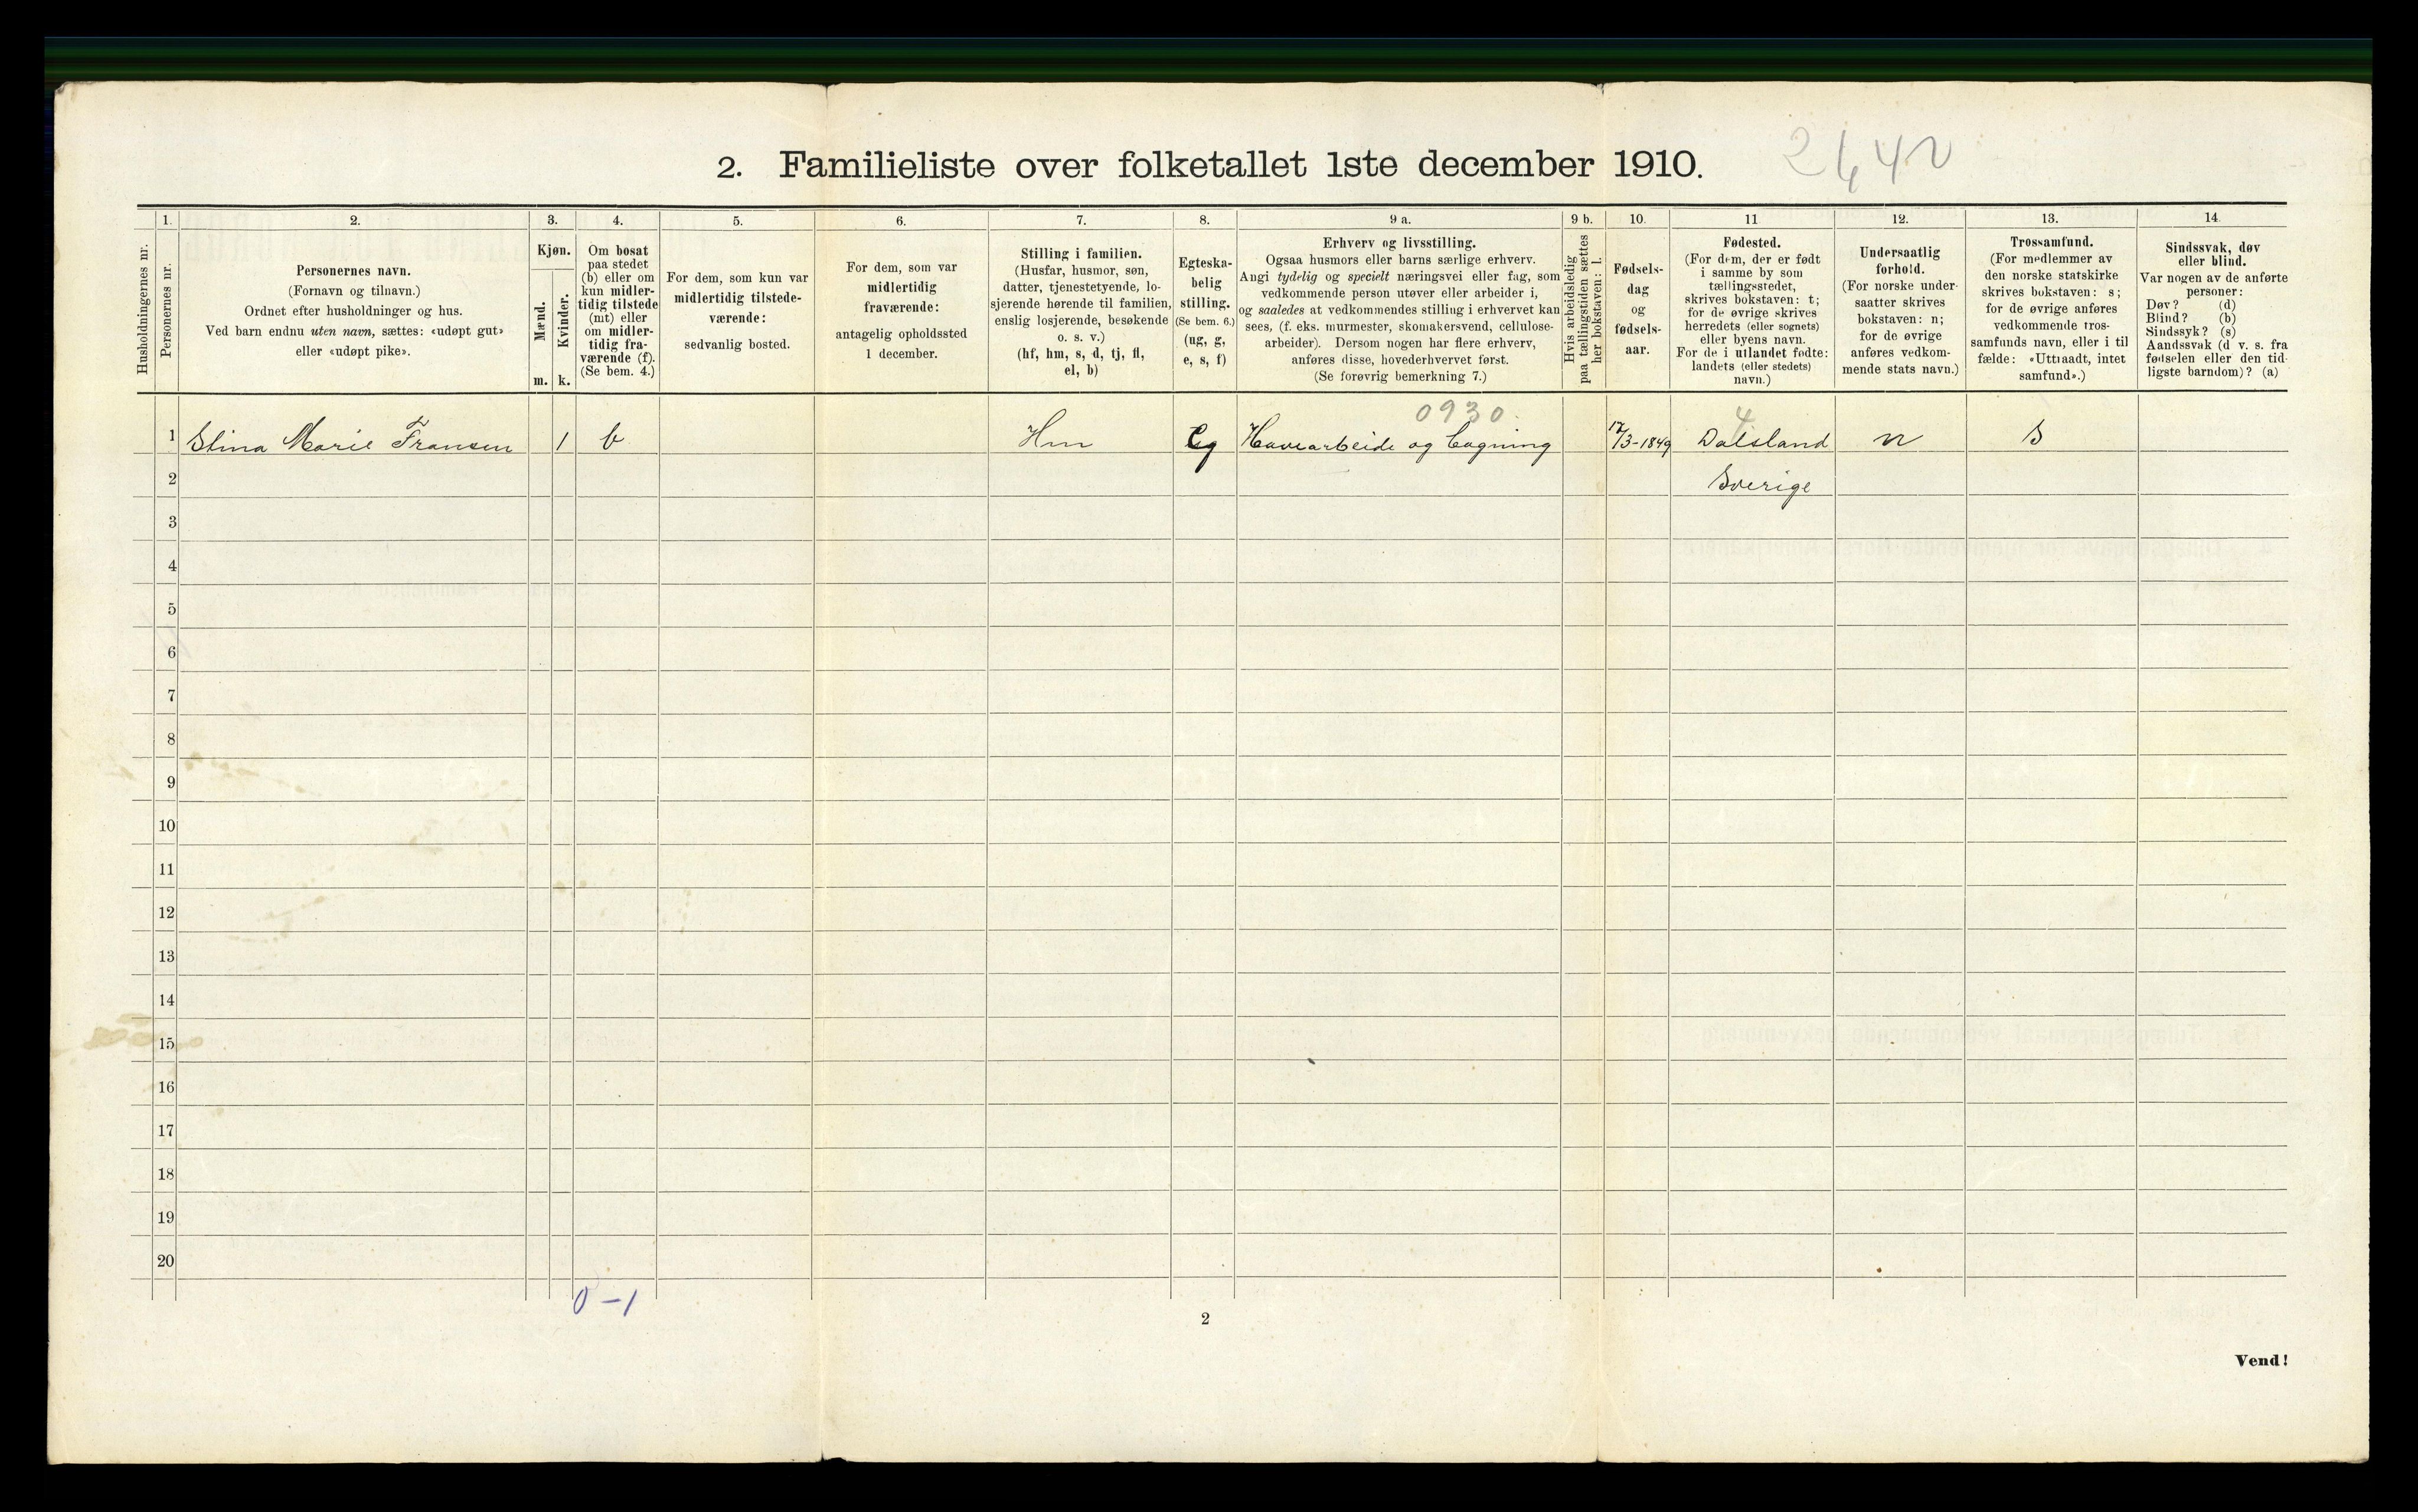 2. Familieliste over folketallet 1ste december 1910.
2642
Husholdningernes nr.
1.
Personernes nr.
2.
Personernes navn.
(Fornavn og tilnavn.)
Ordnet efter husholdninger og hus.
Ved barn endnu uten navn, sættes: «udøpt gut»
eller «udøpt pike».
3.
Kjøn.
Mænd.
m.
Kvinder.
k.
4.
Om bosat
paa stedet
(b) eller om
kun midler-
tidig tilstede
(mt) eller
om midler-
tidig fra-
værende (f).
(Se bem. 4.)
5.
For dem, som kun var
midlertidig tilstede-
værende:
sedvanlig bosted.
6.
For dem, som var
midlertidig
fraværende:
antagelig opholdssted
1 december.
7.
Stilling i familien.
(Husfar, husmor, søn,
datter, tjenestetyende, lo-
sjerende hørende til familien,
enslig losjerende, besøkende
o. s. v.)
(hf, hm, s, d, tj, fl,
el, b)
8.
Egteska-
belig
stilling.
(Se bem. 6.)
(ug, g,
e, s, f)
9 a.
Erhverv og livsstilling.
Ogsaa husmors eller barns særlige erhverv.
Angi tydelig og specielt næringsvei eller fag, som
vedkommende person utøver eller arbeider i,
og saaledes at vedkommendes stilling i erhvervet kan
sees, (f. eks. murmester, skomakersvend, cellulose-
arbeider). Dersom nogen har flere erhverv,
anføres disse, hovederhvervet først.
(Se forøvrig bemerkning 7.)
9 b.
Hvis arbeidsledig
paa tællingstiden sættes
her bokstaven: l.
10.
Fødsels-
dag
og
fødsels-
aar.
11
Fødested.
(For dem, der er født
i samme by som
tællingsstedet,
skrives bokstaven: t;
for de øvrige skrives
herredets (eller sognets)
eller byens navn.
For de i utlandet fødte:
landets (eller stedets)
navn.)
12.
Undersaatlig
forhold.
(For norske under-
saatter skrives
bokstaven: n;
for de øvrige
anføres vedkom-
mende stats navn.)
13.
Trossamfund.
(For medlemmer av
den norske statskirke
skrives bokstaven: s;
for de øvrige anføres
vedkommende tros-
samfunds navn, eller i til
fælde: «Uttraadt, intet
samfund».)
14.
Sindssvak, døv
eller blind.
Var nogen av de anførte
personer:
Døv? (d)
Blind? (b)
Sindssyk? (s)
Aandssvak (d v. s. fra
fødselen eller den tid-
ligste barndom)? (a)
0930. 4
1 Stina Marie Fransen 1 b Hm Eg Havearbeide og Bagning 17/3-1849 Dalsland n S
2 Sverige
3
4
5
6
7
8
9
10
11
12
13
14
15
16
17
18
19
20
0-1
2
Vend!